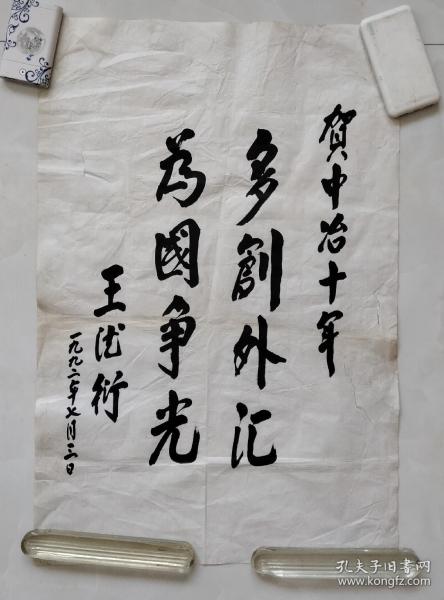 賀中冶十年
多創外汇
为國争光
王德衍
一九九二年七月三日
孔夫子旧书网
www.kongfz.com